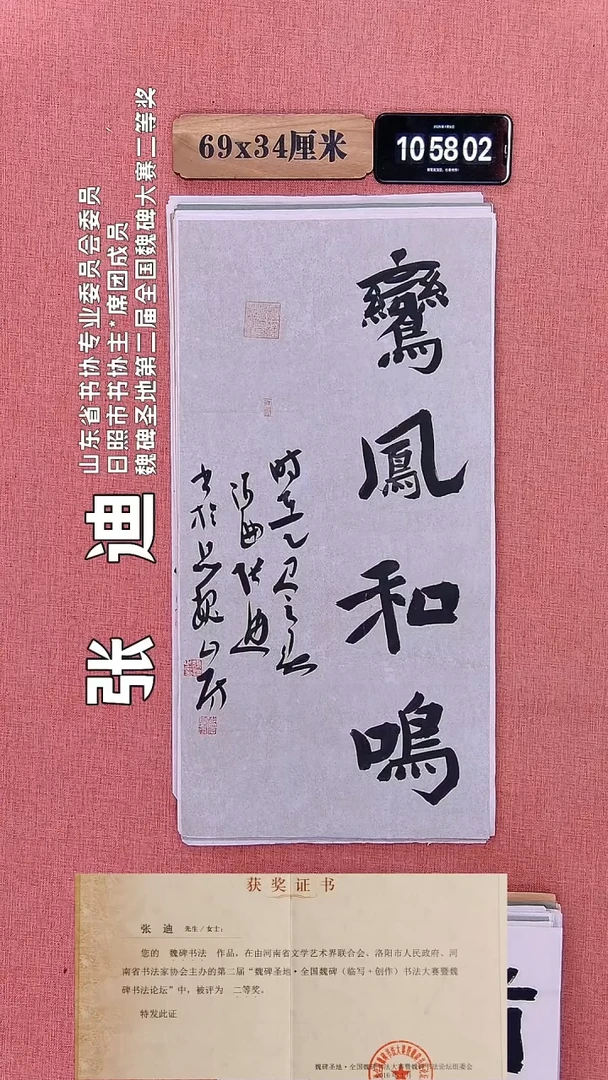 69x34厘米
10 58 02
山东省书协专业委员会委员
日照市书协主*席团成员
魏碑圣地第二届全国魏碑大赛二等奖
张 迪
鸞鳳和鳴
时在乙巳之秋
张迪
书於
获奖证书
张 迪 先生/女士：
您的 魏碑书法 作品，在由河南省文学艺术界联合会、洛阳市人民政府、河
南省书法家协会主办的第二届“魏碑圣地·全国魏碑（临写+创作）书法大赛暨魏
碑书法论坛”中，被评为 二等奖。
特发此证